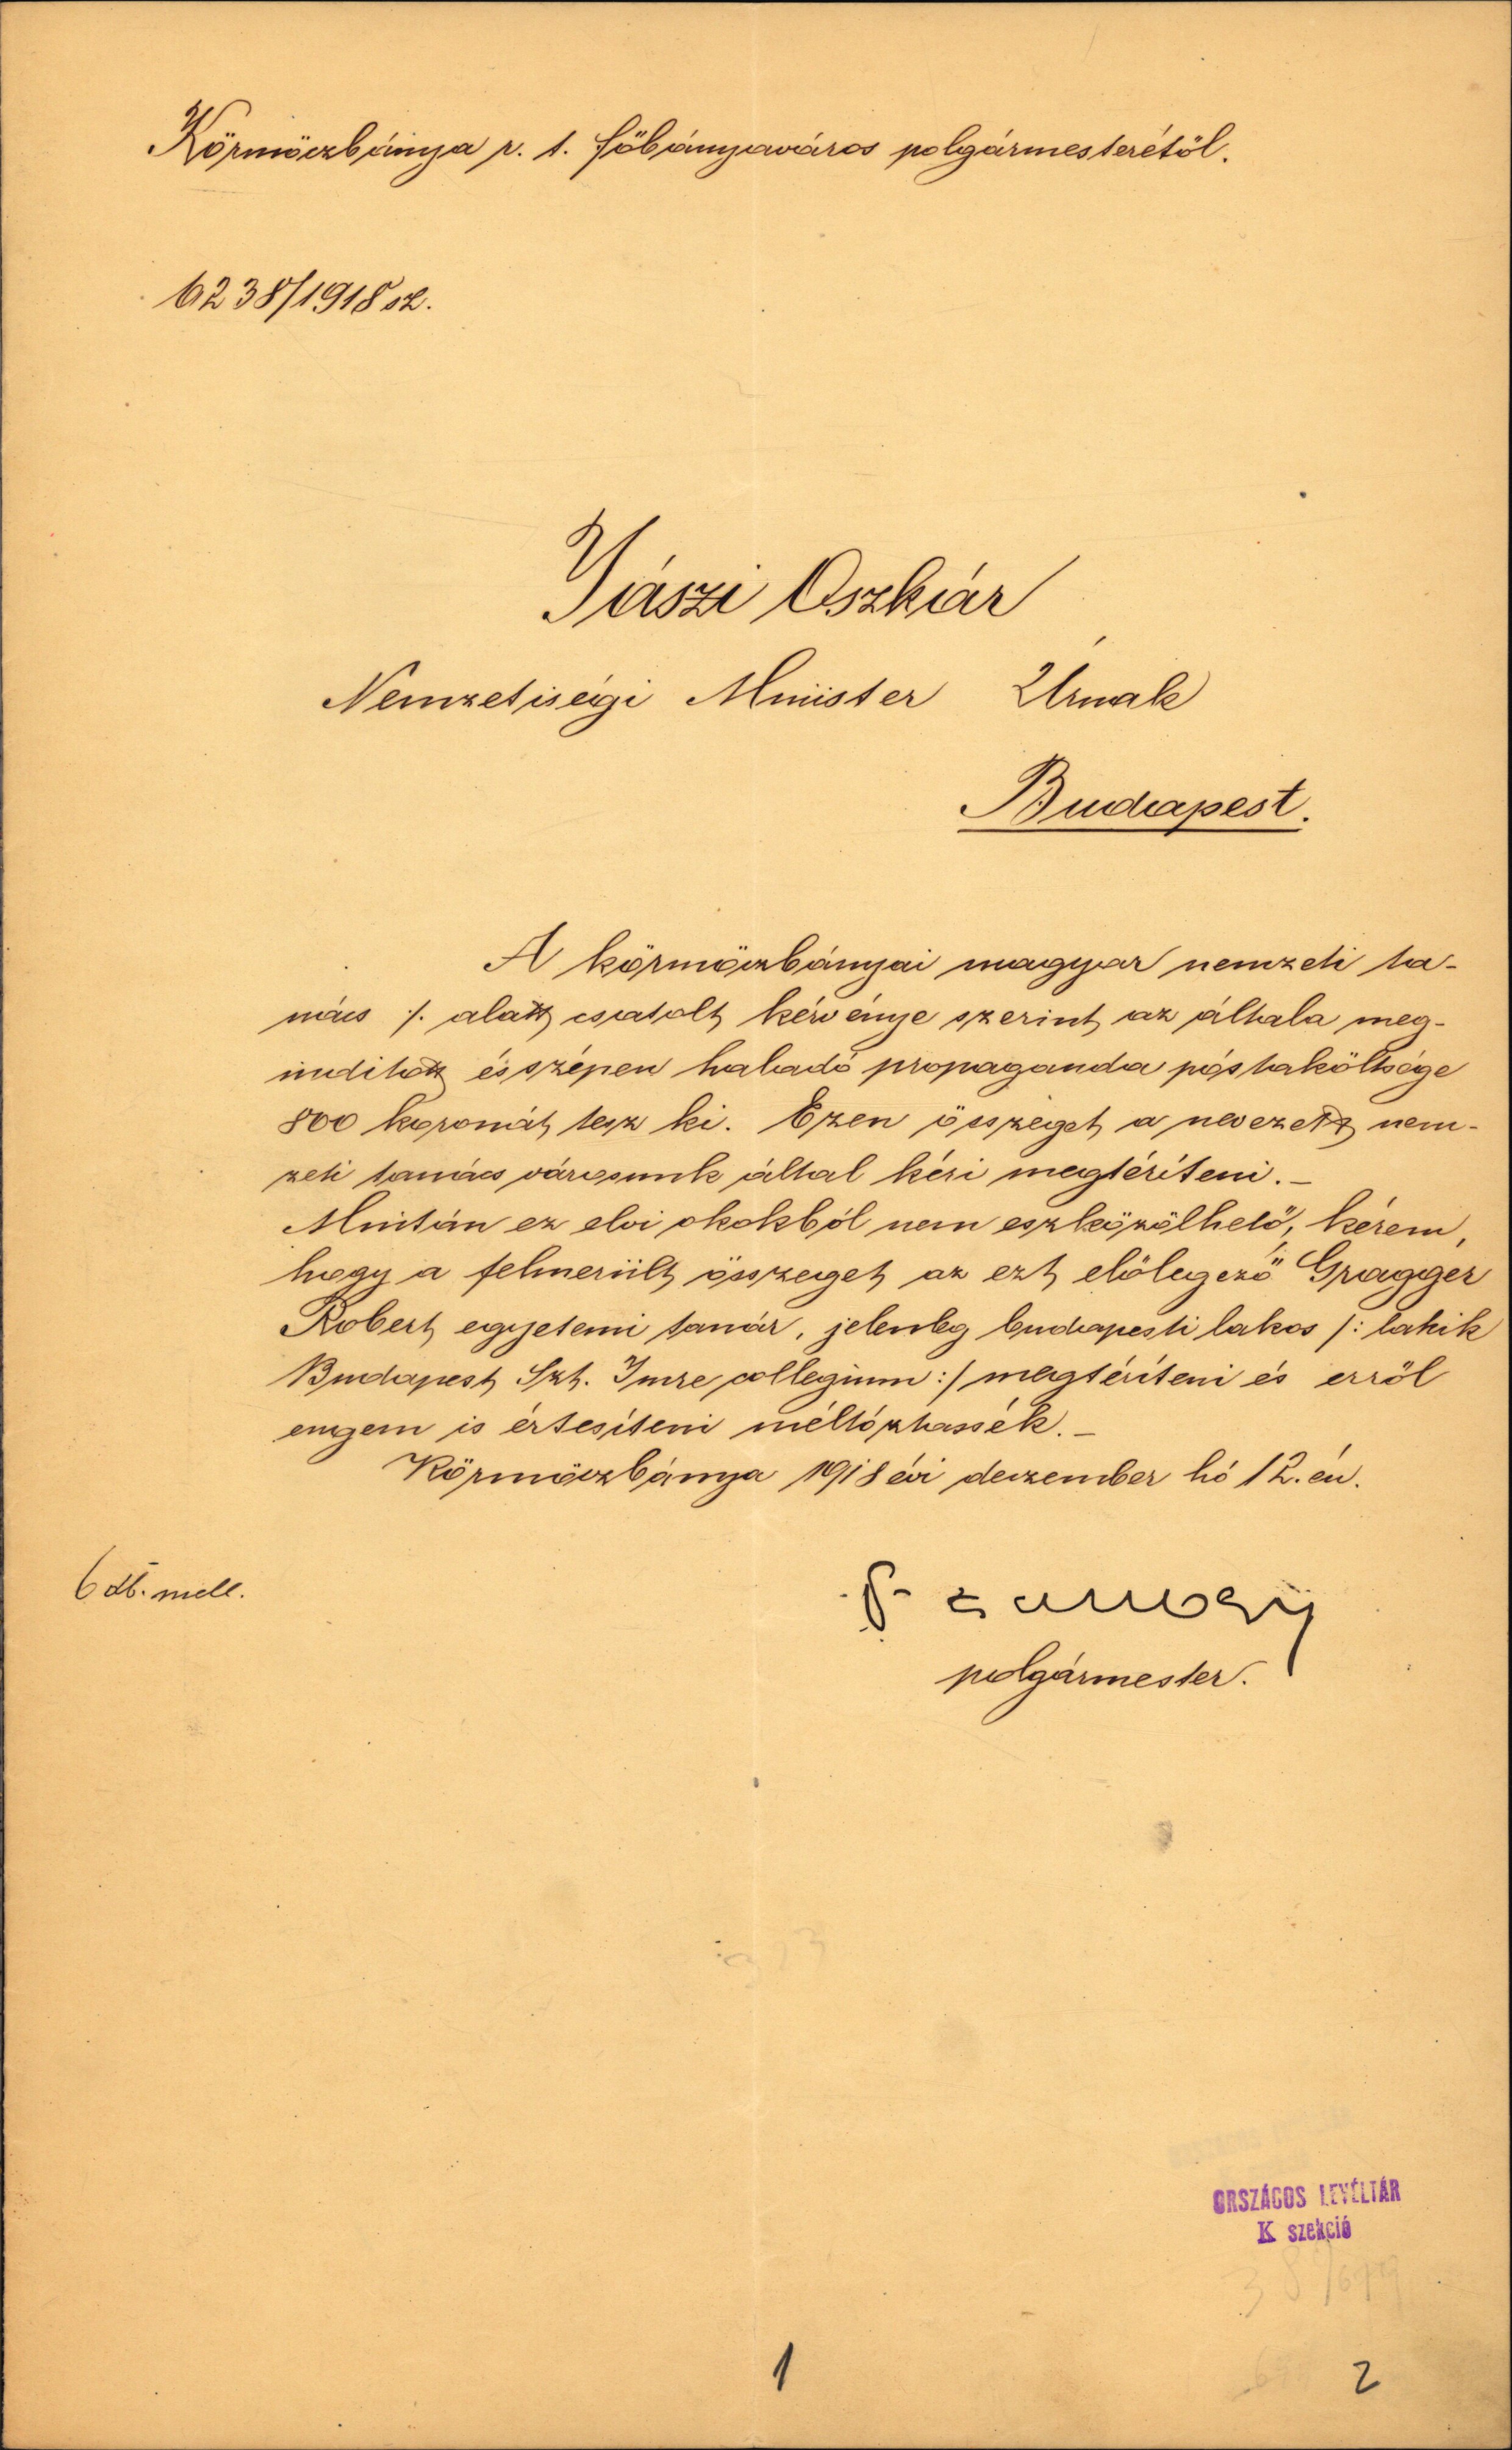 Körmöczbánya r. t. főbányaváros polgármesterétől.
6238/1918 sz.
Jászi Oszkár
Nemzetiségi Minister Úrnak
Budapest.
A körmöczbányai magyar nemzeti ta-
nács ·/. alatt csatolt kérvénye szerint az általa meg-
indított és szépen haladó propaganda póstaköltsége
800 koronát tesz ki. Ezen összeget a nevezett nem-
zeti tanács városunk által kéri megtéríteni.–
Miután ez elvi okokból nem eszközölhető, kérem,
hogy a felmerült összeget az ezt előlegező Gragger
Robert egyetemi tanár, jelenleg budapesti lakos /: lakik
Budapest Szt. Imre collegium :/ megtéríteni és erről
engem is értesíteni méltóztassék.–
Körmöczbánya 1918 évi deczember hó 12.-én.
6 db. mell.
polgármester.
ORSZÁGOS LEVÉLTÁR
K szekció
1
2